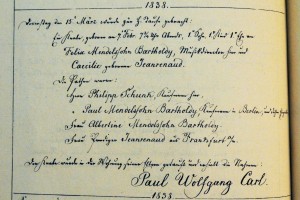 1838.
Dienstag den 15t März wurde zur h. Taufe gebracht:
Ein Knabe, geboren am 7. Febr. 7¾ Uhr Abends, 1s Ehe, 1s Kind, 1s S. von
Felix Mendelssohn Bartholdy, Musikdirector hier und
Caecilie geborne Jeanrenaud.
Die Pathen waren:
Herr Philipp Schunk, Kaufmann hier,
" Paul Mendelssohn Bartholdy, Kaufmann in Berlin,
Frau Albertine Mendelssohn Bartholdy
Frau Jeanrenaud aus Frankfurt a/M.
Der Knabe wurde in der Wohnung seiner Eltern getauft und erhielt die Namen:
Paul Wolfgang Carl.
1838